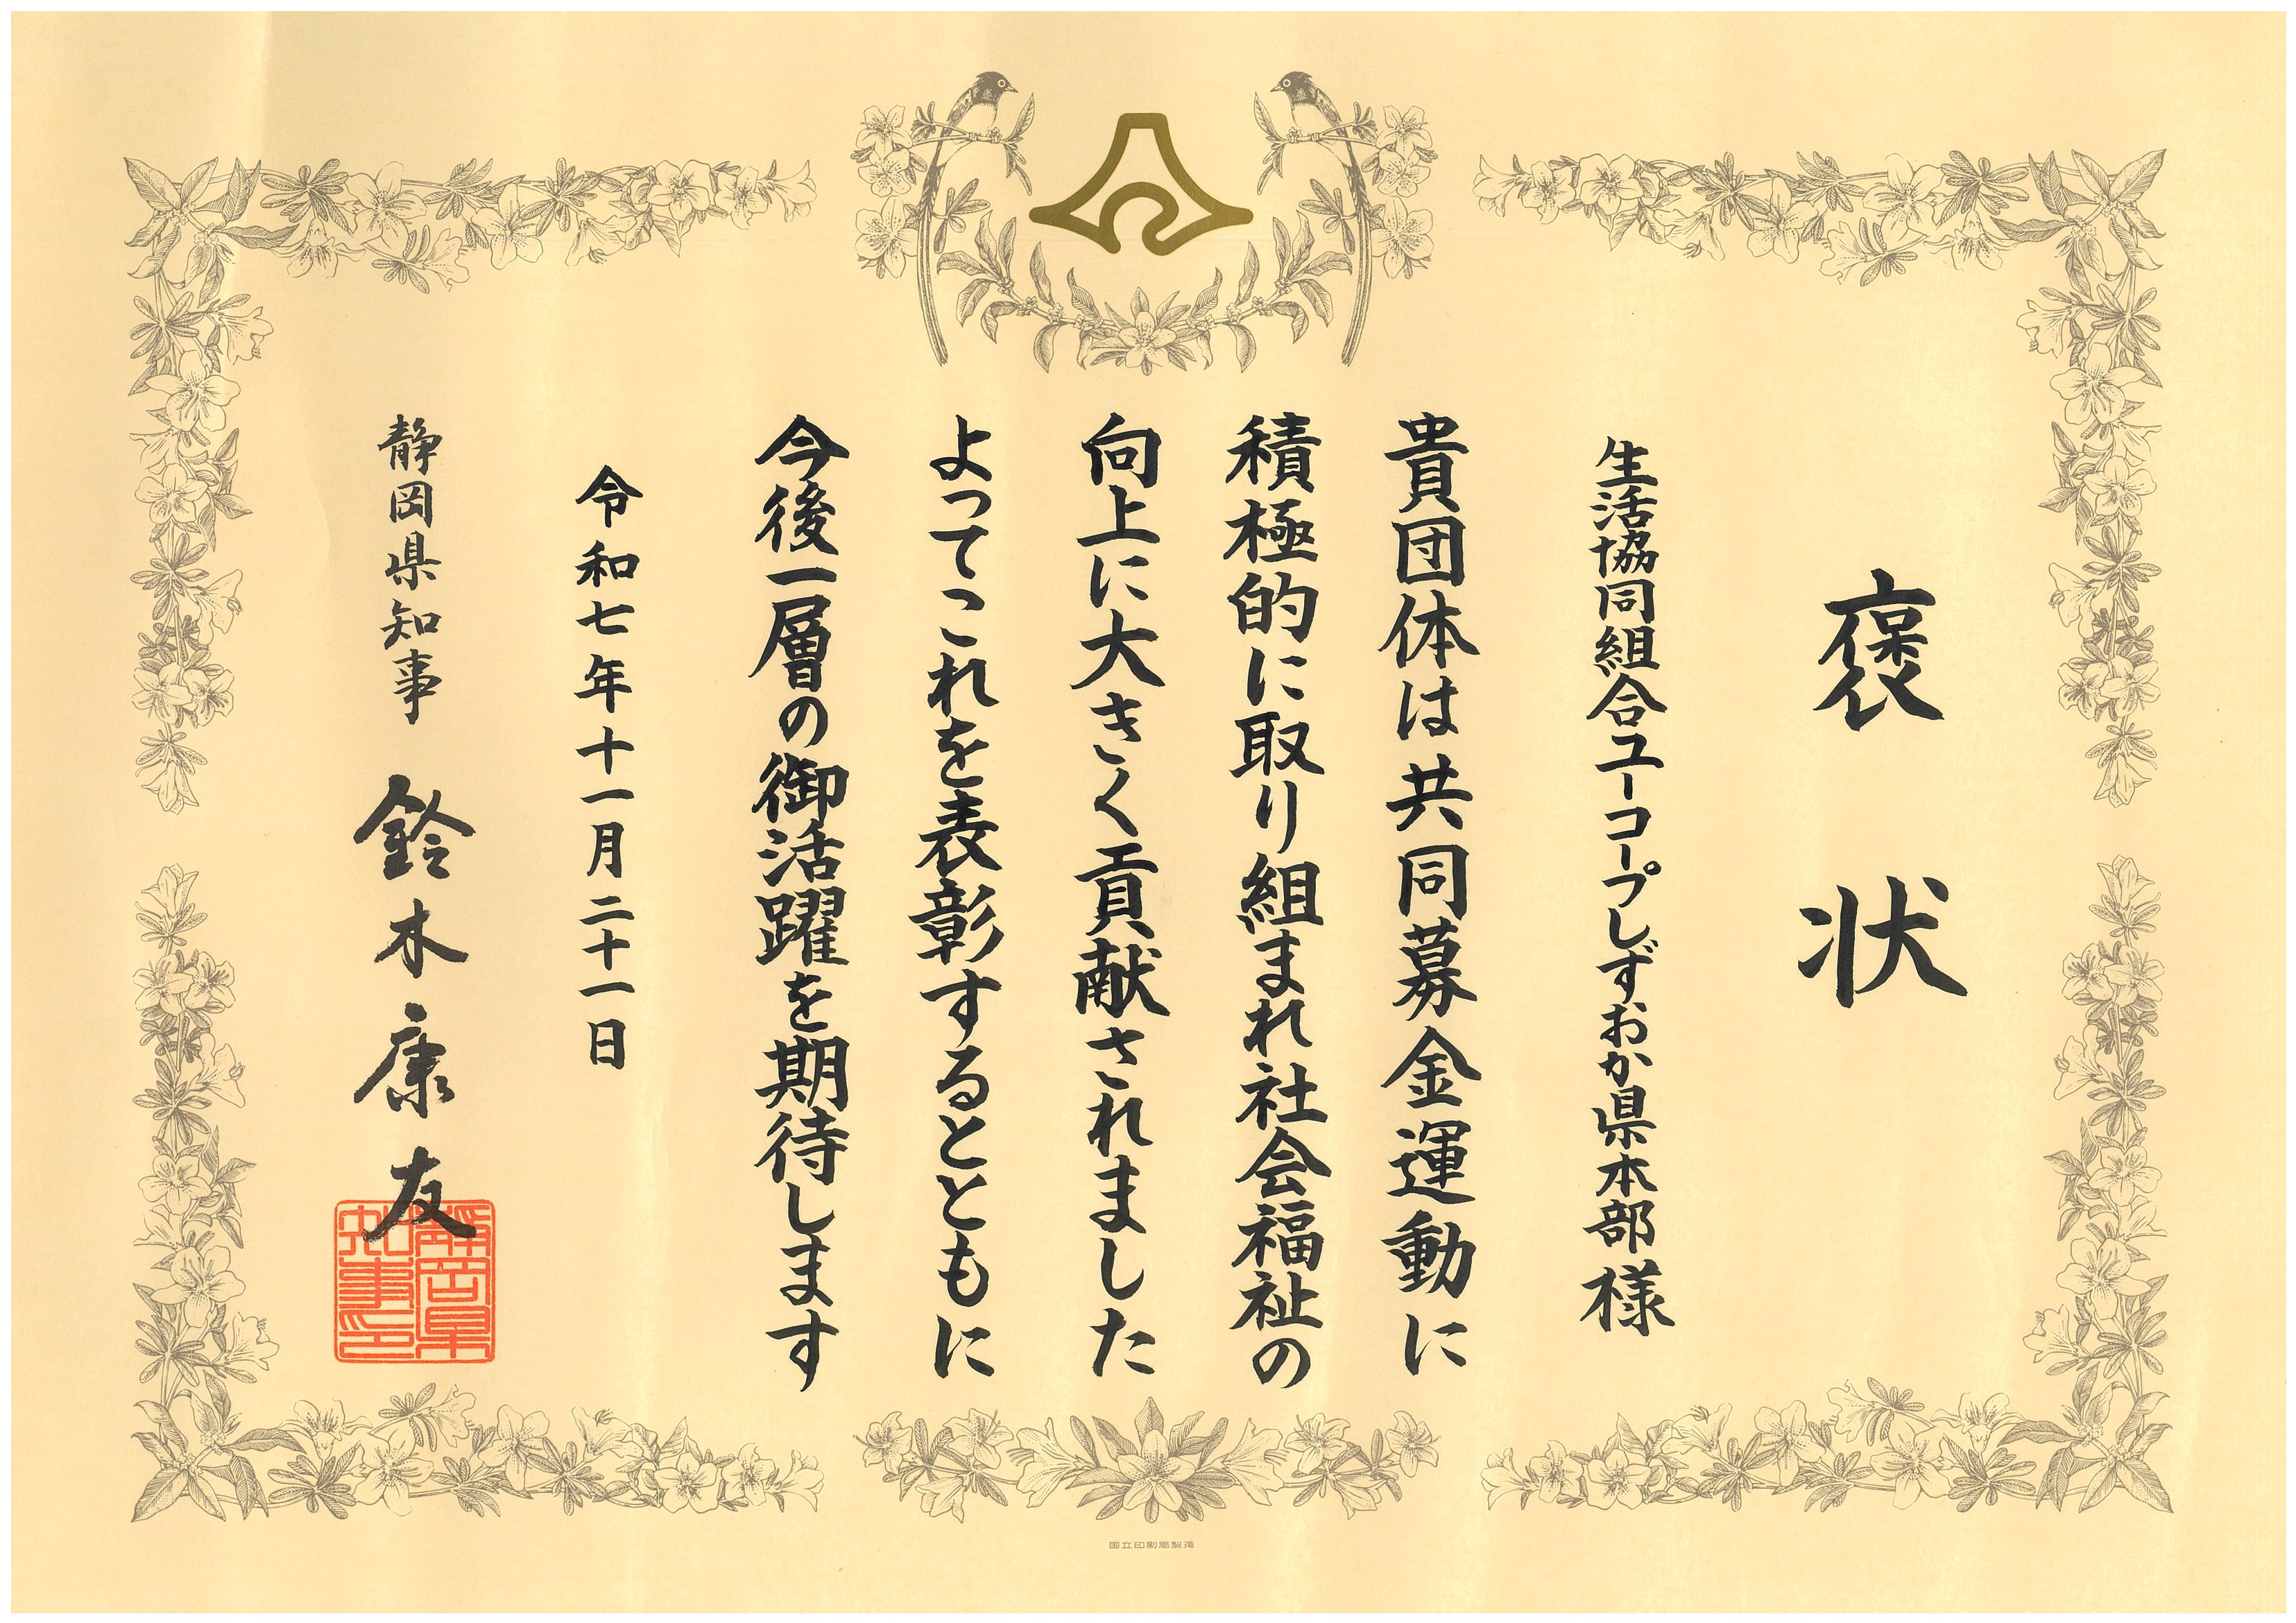 褒状
生活協同組合ユーコープしずおか県本部様
貴団体は共同募金運動に
積極的に取り組まれ社会福祉の
向上に大きく貢献されました
よってこれを表彰するとともに
今後一層の御活躍を期待します
令和七年十一月二十一日
静岡県知事 鈴木康友
静岡県知事印
国立印刷局製造